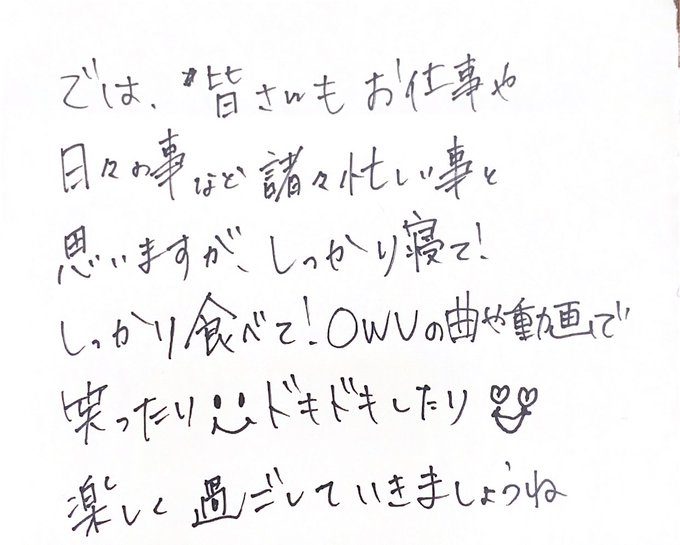 では、皆さんもお仕事や
日々の事など諸々忙しい事と
思いますが、しっかり寝て!
しっかり食べて!OWVの曲や動画で
笑ったり ドキドキしたり
楽しく過ごしていきましょうね